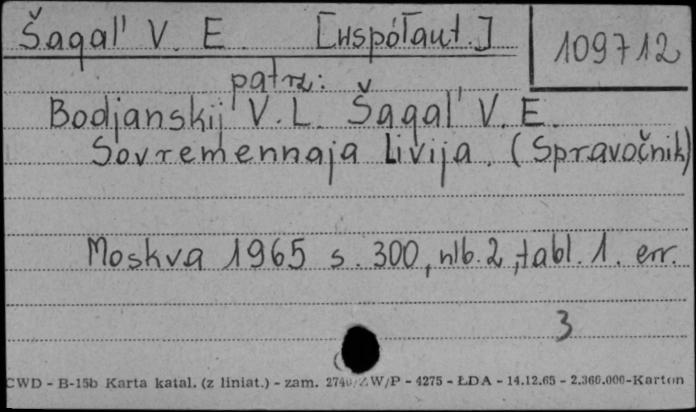 Šagal' V. E. [współaut.]
109712
patrz:
Bodjanskij V. L. Šagal' V. E.
Sovremennaja Livija. (Spravočnik)
Moskva 1965 s. 300, nlb. 2, tabl. 1. err.
3
CWD - B-15b Karta katal. (z liniat.) - zam. 2740/ZW/P - 4275 - ŁDA - 14.12.65 - 2.360.000-Karton